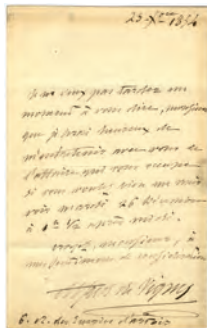 23 Xbre 1854
Je ne veux pas tarder un
moment à vous dire, monsieur
que je serai heureux de
m'entretenir avec vous de
l'affaire qui vous occupe
si vous voulez bien me venir
voir mardi 26 décembre
à 1h 1/2 après midi.
Croyez, monsieur, à
mes sentimens de considération
Alfred de Vigny
6. r. des Ecuries d'Artois